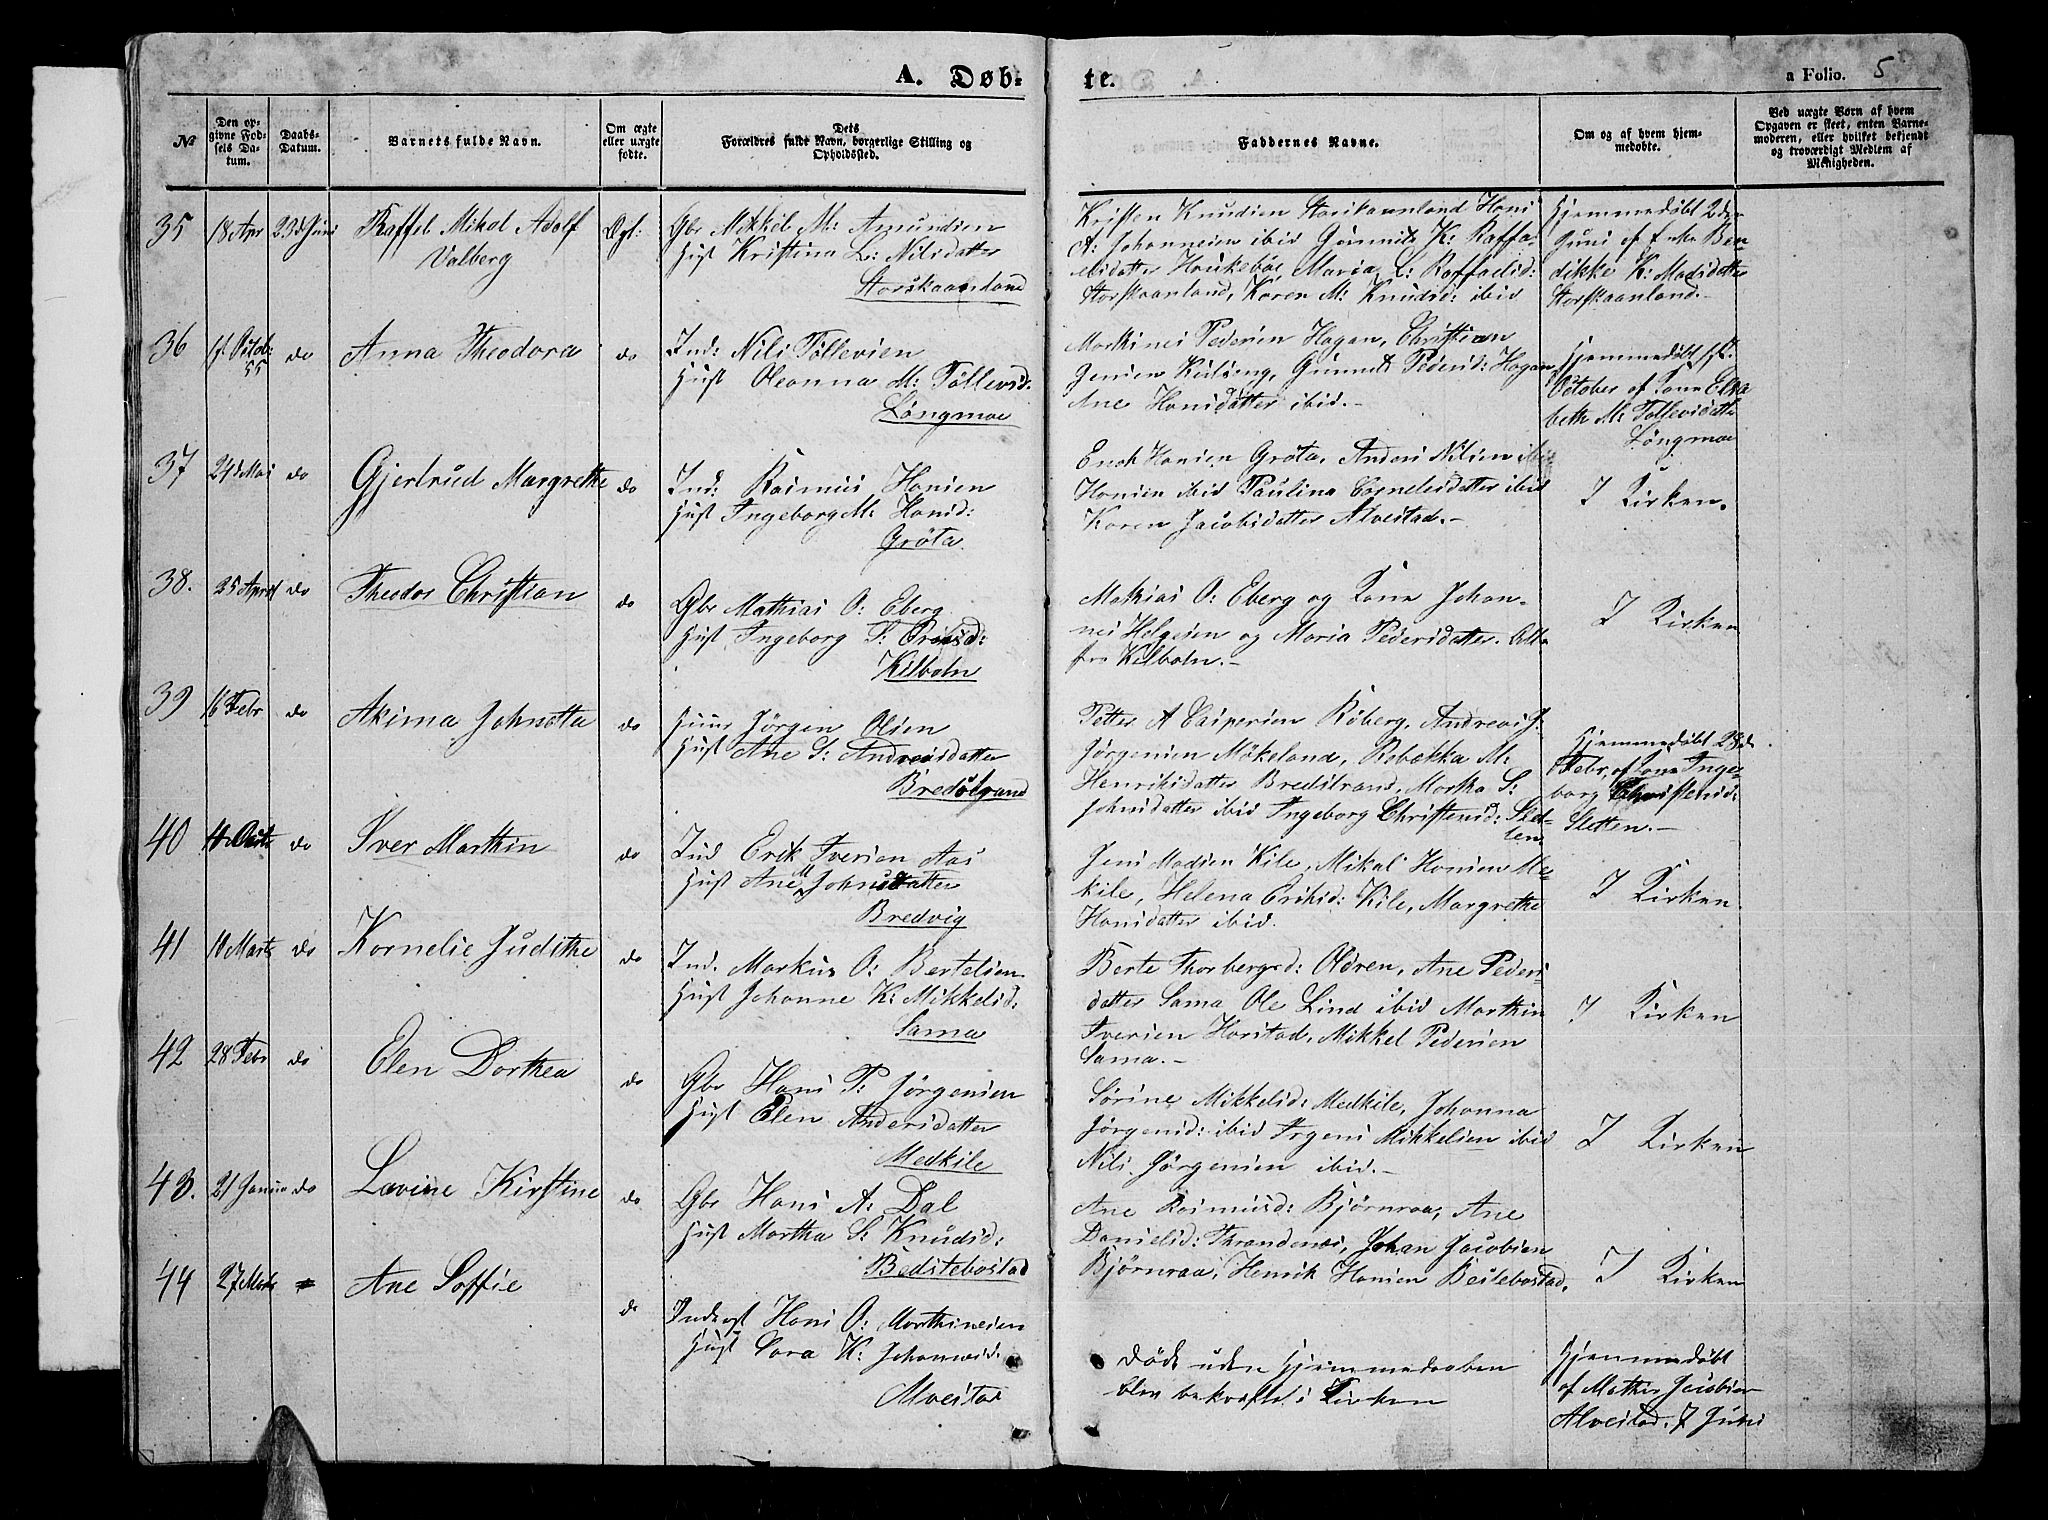 A. Døbte.
a Folio. 5
№
Den opgivne Fødsels Datum.
Daabs-Datum.
Barnets fulde Navn.
Om ægte eller uægte fødte.
Dets Forældres fulde Navn, borgerlige Stilling og Opholdssted.
Faddernes Navne.
Om og af hvem hjemmedøbte.
Ved uægte Børn af hvem Opgaven er skeet, enten Barnemoderen, eller hvilket bekjendt og troværdigt Medlem af Menigheden.
35 18 Apr 23de Juni Raffel Mikal Adolf
Valberg
Ægt:
Gbr Mikkel M: Amundsen
Hust Kristina L: Nilsdatter
Storskaanland
Kristen Knudsen Storskaanland Hans
A: Johannesen ibid Gunnild K: Raffa-
elsdatter Houkebøe Maria L: Raffaelsd:
Storskaanland, Karen M: Knudsd: ibid
Hjemmedøbt 2den
Juni af Enke Ben-
dikke K: Madsdatter
Storskaanland.-
36 1ste Octob: 55 do Anna Theodora do
Ind: Nils Tollevsen
Hust Oleanna M: Tollevsd:
Løngmoe
Marthines Pedersen Hagan, Christian
Jensen Kulseng, Gunnild Pedersd: Hagan
Ane Hansdatter ibid.-
Hjemmedøbt 1ste
October af Kone Elisa
beth M: Tollevsdatter
Løngmoe
37 24de Mai do Gjertrud Margrethe do
Ind: Rasmus Hansen
Hust Ingeborg M: Hansd:
Grøta
Enok Hansen Grøta, Anders Nilsen ibid
Hansen ibid Paulina Corneliusdatter ibid
Karen Jacobsdatter Alvestad.-
I Kirken.
38. 25 April do Theodor Christian do
Gbr Mathias O: Eberg
Hust Ingeborg S:
Kilbotn
Mathias O: Eberg og Kone Johan-
nes Helgesen og Maria Pedersdatter. Alle
fra Kilbotn.-
I Kirken
39 16 Febr do Akima Johnetta do
Huusm Jørgen Olsen
Hust Ane S: Andreasdatter
Bredstrand
Petter A Caspersen Røberg, Andreas J.
Jørgensen Møkeland, Rebekka M:
Henriksdatter Bredstrand, Martha S:
Johnsdatter ibid Ingeborg Christensd: Slet-
ten
Hjemmedøbt 28de
Febr. af Kone Inge-
borg Christensd:
Sletten.-
40 do Iver Marthin do
Ind Erik Iversen Aas
Hust Ane M Johnsdatter
Bredvig
Jens Madsen Kile, Mikal Hansen Me-
kile, Helena Eriksd: Kile, Margrethe
Hansdatter ibid.
I Kirken
41 10 Marts do Kornelie Judithe do
Ind. Markus O: Bertelsen
Hust Johanne K: Mikkelsd:
Sama
Berte Thorbergsd: Oldren, Ane Peders
datter Sama Ole Lind ibid Marthin
Iversen Harstad, Mikkel Pedersen
Sama.-
I Kirken
42 28 Febr do Elen Dorthea do
Gbr Hans P: Jørgensen
Hust Elen Andersdatter
Medkile
Sørine Mikkelsd: Medkile, Johanna
Jørgensd: ibid Irgens Mikkelsen ibid
Nils Jørgensen ibid.-
I Kirken
43. 21 Januar do Lavine Kirstine do
Gbr Hans A: Dal
Hust Martha S: Knudsd:
Bedstebostad
Ane Rasmusd: Bjørnraa, Ane
Danielsd: Throndenæs, Johan Jacobsen
Bjørnraa, Henrik Hansen Bestebostad.
I Kirken
44 27 Marts Ane Soffie do
Inderst Hans O: Marthinesen
Hust Sara K: Johannesd:
Alvestad
Døde uden Hjemmedaaben
blev bekræftet i Kirken
Hjemmedøbt
af Mathis Jacobsen
Alvestad, 7 Juni